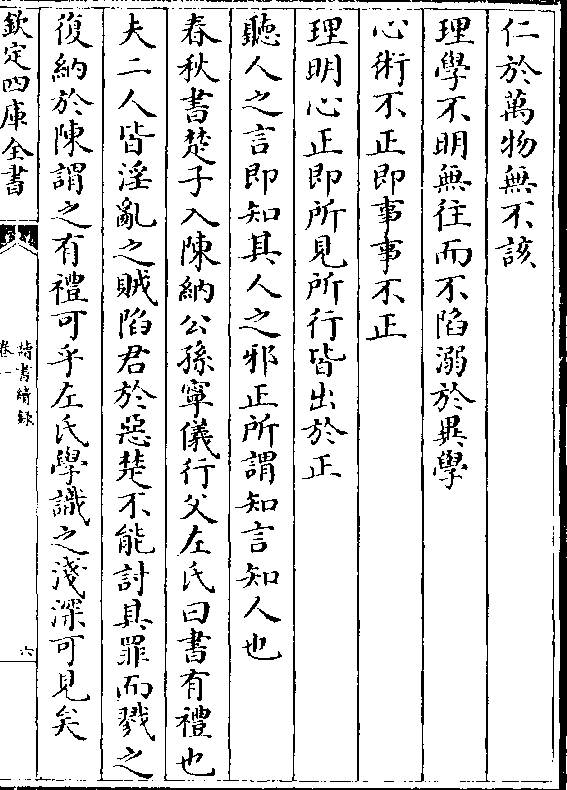 仁於萬物無不該
理學不明無徃而不陷溺於異學
心術不正即事事不正
理明心正即所見所行皆出於正
聽人之言即知其人之邪正所謂知言知人也
春秋書楚子入陳納公孫寧儀行父左氏曰書有禮也
夫二人皆淫亂之賊陷君於惡楚不能討其罪而戮之
復納於陳謂之有禮可乎左氏學識之淺深可見矣
欽定四庫全書
讀書續錄
卷一
六